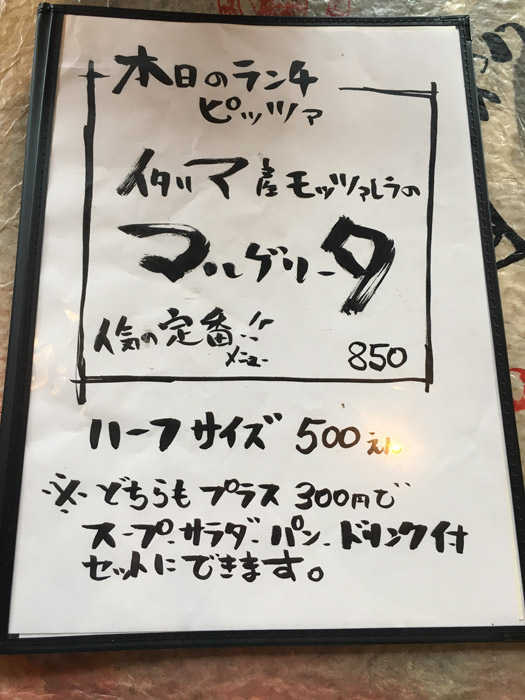 本日のランチ
ピッツァ
イタリア産モッツァレラの
マルゲリータ
人気の定番!!
メニュー
850
ハーフサイズ 500えん
※どちらもプラス300円で
スープ、サラダ、パン、ドリンク付
セットにできます。